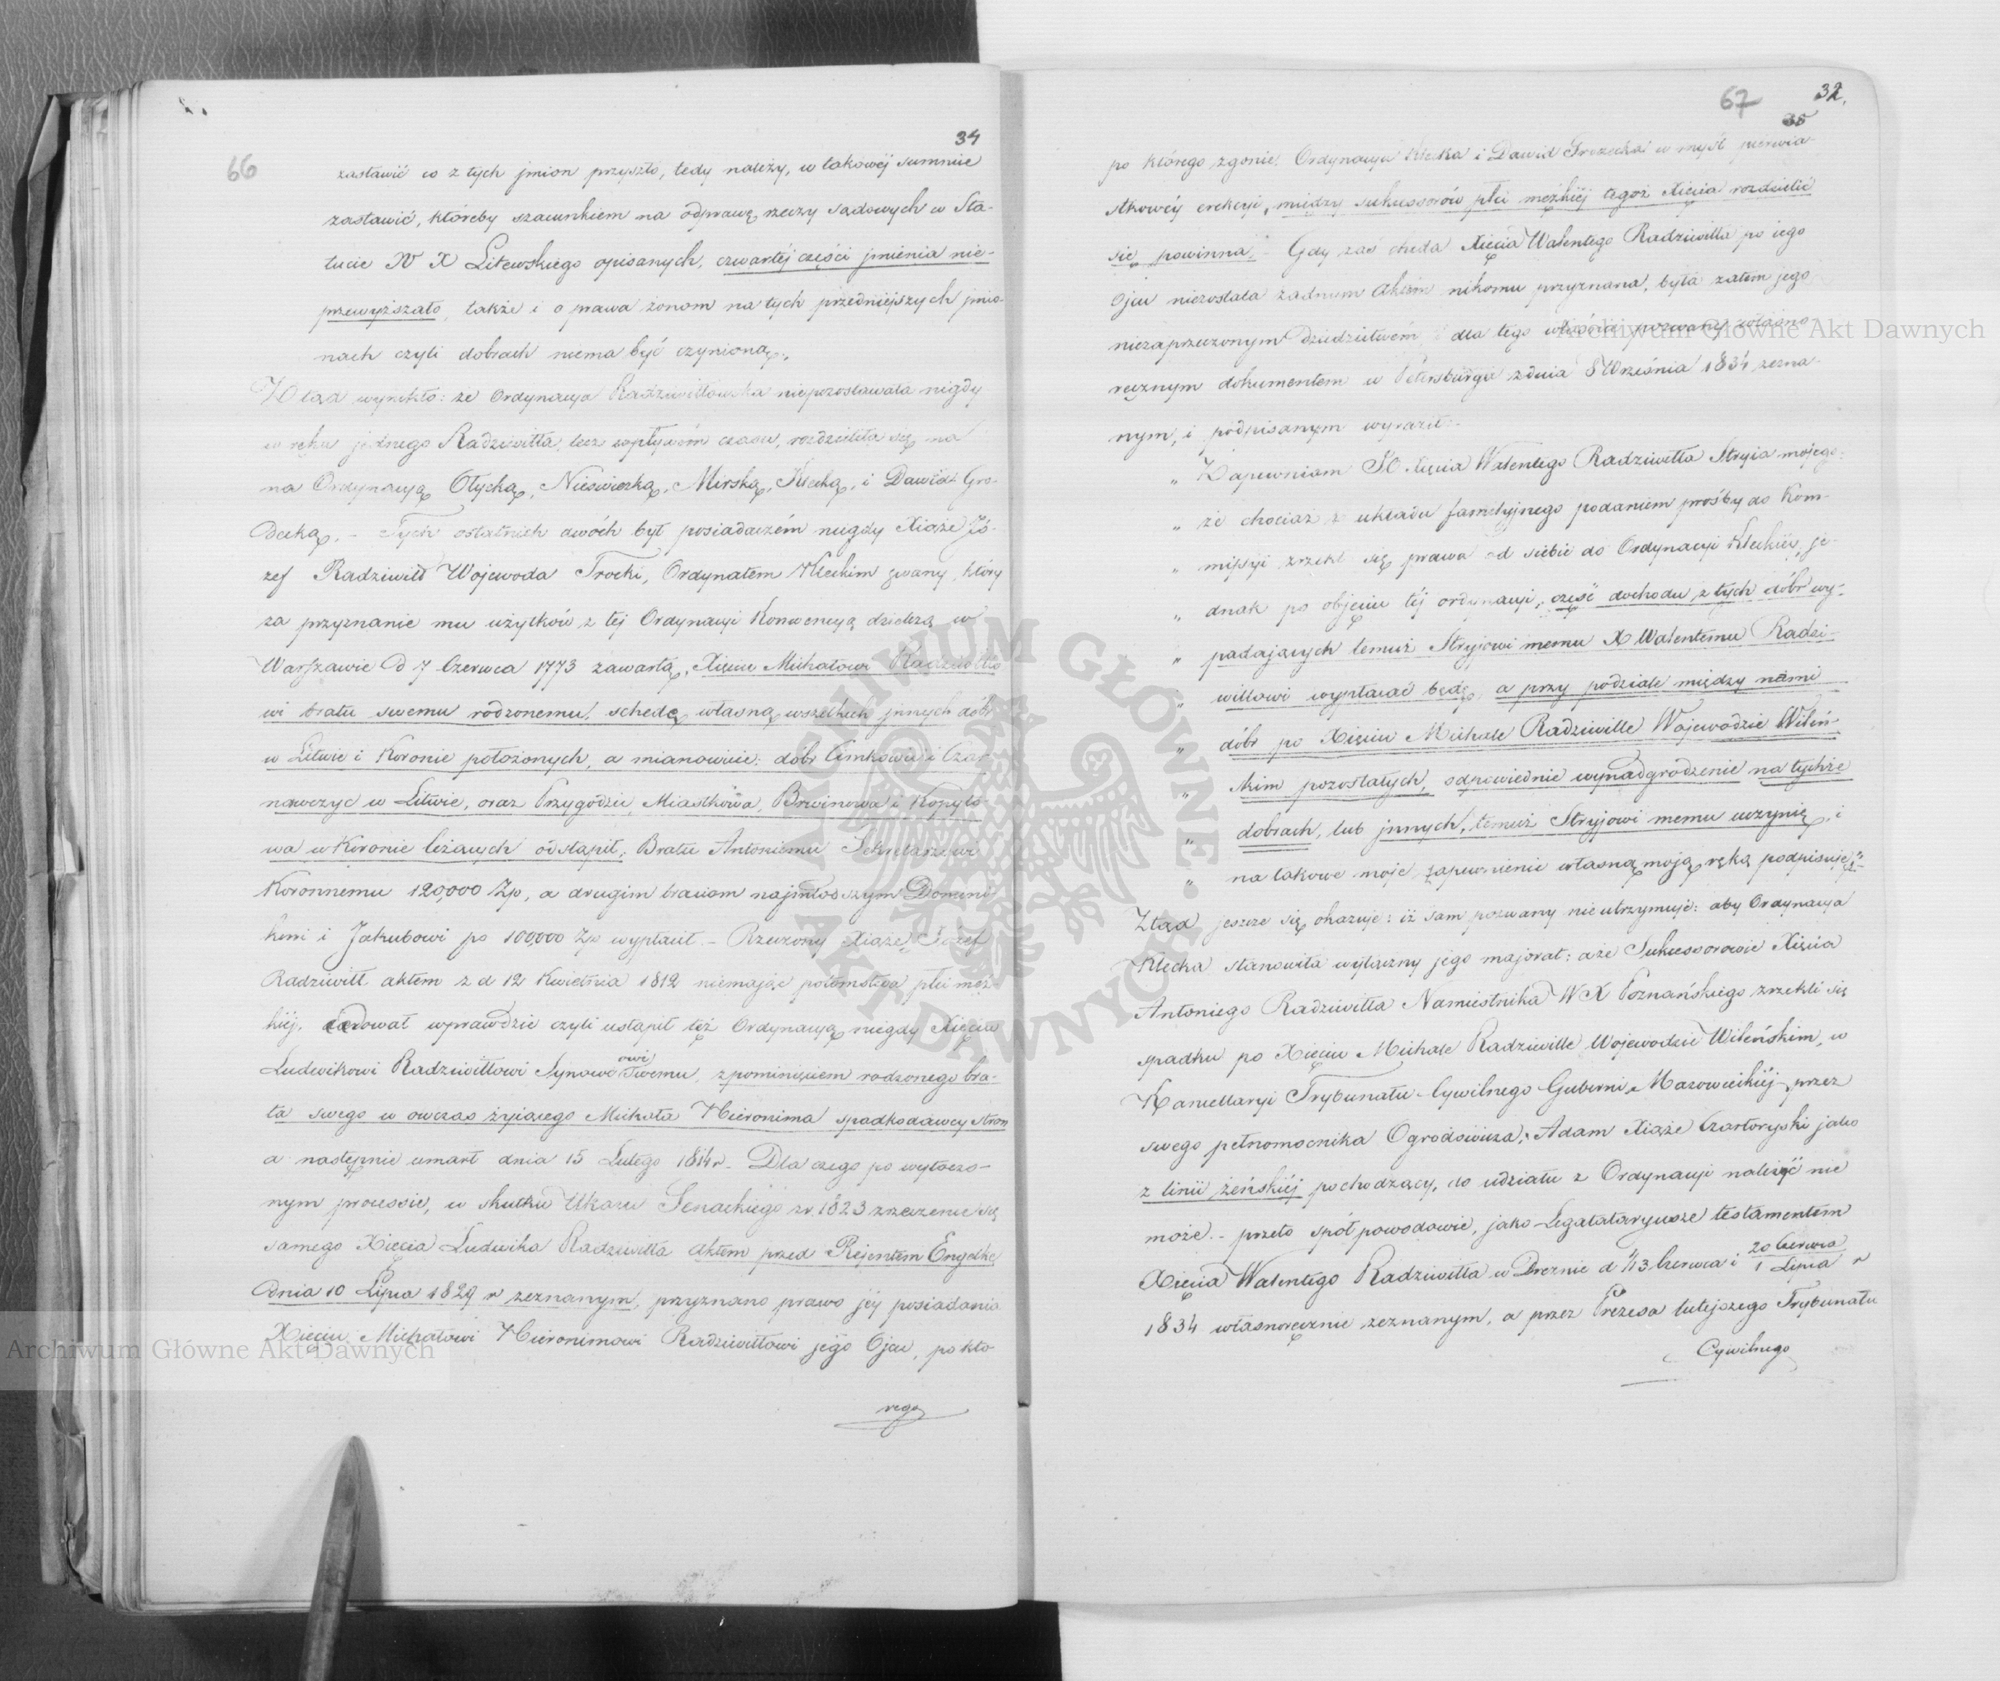 66
34
zastawić co z tych jmion przyszło, tedy należy, w takowej summie
zastawić, któreby szacunkiem na odprawę rzeczy sądowych w Sta-
tucie W X Litewskiego opisanych, czwartéj części jmienia nie-
przewyższało, także i o prawa żonom na tych przedniejszych jmio-
nach czyli dobrach niema być czynioną.,
Ztąd wynikło: że Ordynacya Radziwiłłowska niepozostawała nigdy
w ręku jednego Radziwiłła, lecz wpływem czasu, rozdzieliła się na
na Ordynacyą Ołycką, Nieświezką, Mirską, Klecką, i Dawid Gro-
decką. - Tych ostatnich dwóch był posiadaczém niegdy Xiąże Jó-
zef Radziwiłł Wojewoda Trocki, Ordynatem Kleckim zwany, który
za przyznanie mu użytków z tej Ordynacyi Konwencyą dzielczą w
Warszawie d 7 Czerwca 1773 zawartą, Xięciu Michałowi Radziwiłło
wi bratu swemu rodzonemu, schedę własną wszelkich jnnych dóbr
w Litwie i Koronie położonych, a mianowicie: dóbr Cimkowic i Czar
nawczyc w Litwie, oraz Przygodzic, Miastkowa, Brwinowa i Kopyto-
wa w Koronie leżących odstąpił, Bratu Antoniemu Sekretarzowi
Koronnemu 120,000 Zp, a drugim braciom najmłodszym Domini
kowi i Jakubowi po 100,000 Zp wypłacił. - Rzeczony Xiąże Józef
Radziwiłł aktem z d 12 Kwietnia 1812 niemając potomstwa płci męz-
kiej, darował wprawdzie czyli ustąpił też Ordynacyą niegdy Xięcia
Ludwikowi Radziwiłłowi Synowcowi Swemu, z pominięciem rodzonego bra-
ta swego w owczas żyiącego Michała Hieronima spadkodawcy stron
a następnie umarł dnia 15 Lutego 1814 r. Dla czego po wytoczo-
nym processie, w skutku Ukazu Senackiego z r. 1823 zrzeczenie się
samego Xięcia Ludwika Radziwiłła Aktem przed Rejentem Engelke
dnia 10 Lipca 1829 r zeznanym, przyznano prawo jéj posiadania
Xięciu Michałowi Hieronimowi Radziwiłłowi jego Ojcu, po któ-
rego
67
32.
35
po którego zgonie, Ordynacya Klecka i Dawid Grodecka w myśl pierwia-
stkowéj erekcyi, między sukcessorów płci męzkiéj tegoż Xięcia rozdzielić
się powinna. - Gdy zaś cheda Xięcia Walentego Radziwiłła po jego
Ojcu niezostała żadnym Aktem nikomu przyznana, była zatem jego
niezaprzeczonym dziedzictwem, dla tego właśnie pozwany własno
ręcznym dokumentem w Petersburgu z dnia 8 Września 1834 zezna-
nym, i podpisanym wyraził:
„ Zapewniam JO Xięcia Walentego Radziwiłła Stryia mojego:
„ że chociaż z układu familyjnego podaniem prośby do Kom-
„ missyi zrzekł się prawa od siebie do Ordynacyi Kleckiéj, je-
„ dnak po objęciu téj ordynacyi, część dochodu z tych dóbr wy-
„ padających temuż Stryiowi memu X Walentemu Radzi-
„ wiłłowi wypłacać będę, a przy podziale między nami
„ dóbr po Xięciu Michale Radziwille Wojewodzie Wileń-
„ skim pozostałych, odpowiednie wynadgrodzenie na tychże
„ dobrach, lub jnnych, temuż Stryjowi memu uczynię, i
„ na takowe moje zapewnienie własną moją ręką podpisuję.”
Ztąd jeszcze się okazuje: iż sam pozwany nieutrzymuje: aby Ordynacya
Klecka stanowiła wyłączny jego majorat: a że Sukcessorowie Xięcia
Antoniego Radziwiłła Namiestnika W X Poznańskiego zrzekli się
spadku po Xięciu Michale Radziwille Wojewodzie Wileńskim, w
Kancellaryi Trybunału Cywilnego Guberni Mazowieckiéj, przez
swego pełnomocnika Ogrodowicza, Adam Xiąże Czartoryski jako
z linii żeńskiéj pochodzący, do udziału z Ordynacyi należéć nie
może. - przeto spół powodowie, jako Legatataryusze testamentem
Xięcia Walentego Radziwiłła w Dreznie d 1/13 Czerwca i 20 Czerwca/1 Lipca r
1834 własnoręcznie zeznanym, a przez Prezesa tutejszego Trybunału
Cywilnego
Archiwum Główne Akt Dawnych
Archiwum Główne Akt Dawnych
ARCHIWUM GŁÓWNE AKT DAWNYCH